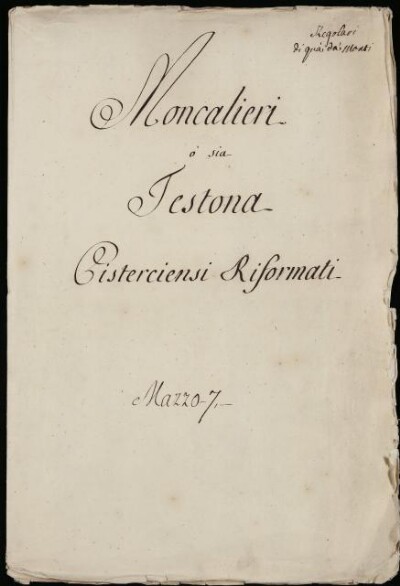 Regolari
di quà da' Monti
Moncalieri
ó sia
Testona
Cisterciensi Riformati
Mazzo 7.